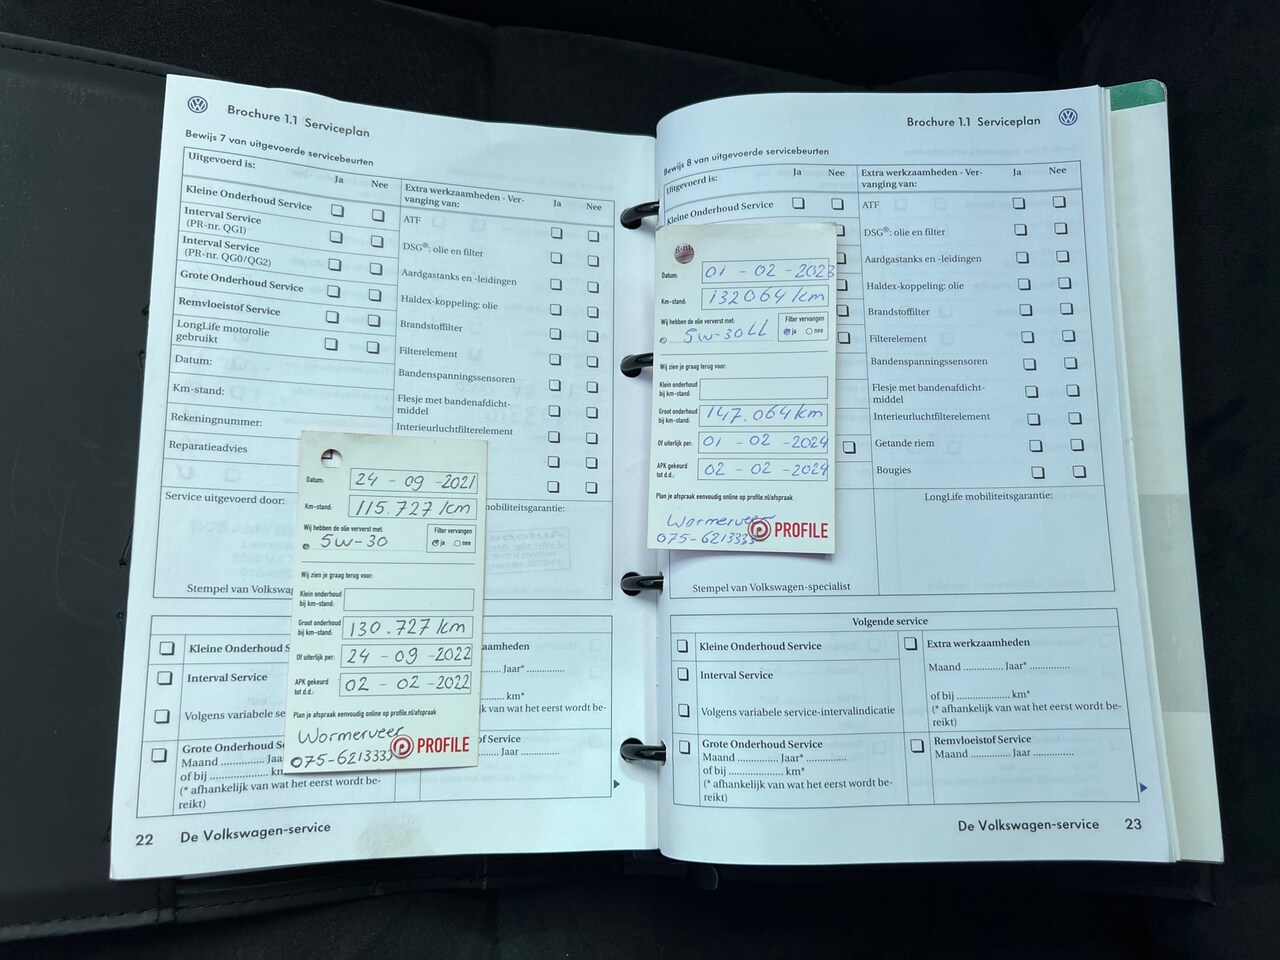 Brochure 1.1 Serviceplan
Bewijs 7 van uitgevoerde servicebeurten
Uitgevoerd is:
Ja
Nee
Kleine Onderhoud Service
Interval Service
(PR-nr. QG1)
Interval Service
(PR-nr. QG0/QG2)
Grote Onderhoud Service
Remvloeistof Service
LongLife motorolie
gebruikt
Datum:
Km-stand:
Rekeningnummer:
Reparatieadvies
Extra werkzaamheden - Ver-
vanging van:
Ja
Nee
ATF
DSG®: olie en filter
Aardgastanks en -leidingen
Haldex-koppeling: olie
Brandstoffilter
Filterelement
Bandenspanningssensoren
Flesje met bandenafdicht-
middel
Interieurluchtfilterelement
Service uitgevoerd door:
mobiliteitsgarantie:
Stempel van Volkswag
Datum: 24 - 09 - 2021
Km-stand: 115.727 km
Wij hebben de olie ververst met:
5w-30
Filter vervangen
ja nee
Wij zien je graag terug voor:
Klein onderhoud
bij km-stand:
Groot onderhoud
bij km-stand: 130.727 km
Of uiterlijk per: 24 - 09 - 2022
APK gekeurd
tot d.d.: 02 - 02 - 2022
Plan je afspraak eenvoudig online op profile.nl/afspraak
Wormerveer
075-6213333
PROFILE
Kleine Onderhoud S
Interval Service
Volgens variabele se
Grote Onderhoud Se
Maand .............. Jaa
of bij ..................... km
(* afhankelijk van wat het eerst wordt be-
reikt)
amheden
Jaar* ..............
km*
(* afhankelijk van wat het eerst wordt be-
reikt)
of Service
Jaar ..............
22 De Volkswagen-service
Brochure 1.1 Serviceplan
Bewijs 8 van uitgevoerde servicebeurten
Uitgevoerd is:
Ja
Nee
Kleine Onderhoud Service
Extra werkzaamheden - Ver-
vanging van:
Ja
Nee
ATF
DSG®: olie en filter
Aardgastanks en -leidingen
Haldex-koppeling: olie
Brandstoffilter
Filterelement
Bandenspanningssensoren
Flesje met bandenafdicht-
middel
Interieurluchtfilterelement
Getande riem
Bougies
LongLife mobiliteitsgarantie:
Stempel van Volkswagen-specialist
Datum: 01 - 02 - 2023
Km-stand: 132064 km
Wij hebben de olie ververst met:
5w-30LL
Filter vervangen
ja nee
Wij zien je graag terug voor:
Klein onderhoud
bij km-stand:
Groot onderhoud
bij km-stand: 147.064 km
Of uiterlijk per: 01 - 02 - 2024
APK gekeurd
tot d.d.: 02 - 02 - 2024
Plan je afspraak eenvoudig online op profile.nl/afspraak
Wormerveer
075-6213333
PROFILE
Volgende service
Kleine Onderhoud Service
Interval Service
Volgens variabele service-intervalindicatie
Grote Onderhoud Service
Maand .............. Jaar* ..............
of bij ..................... km*
(* afhankelijk van wat het eerst wordt be-
reikt)
Extra werkzaamheden
Maand .............. Jaar* ..............
of bij ..................... km*
(* afhankelijk van wat het eerst wordt be-
reikt)
Remvloeistof Service
Maand .............. Jaar ..............
De Volkswagen-service 23